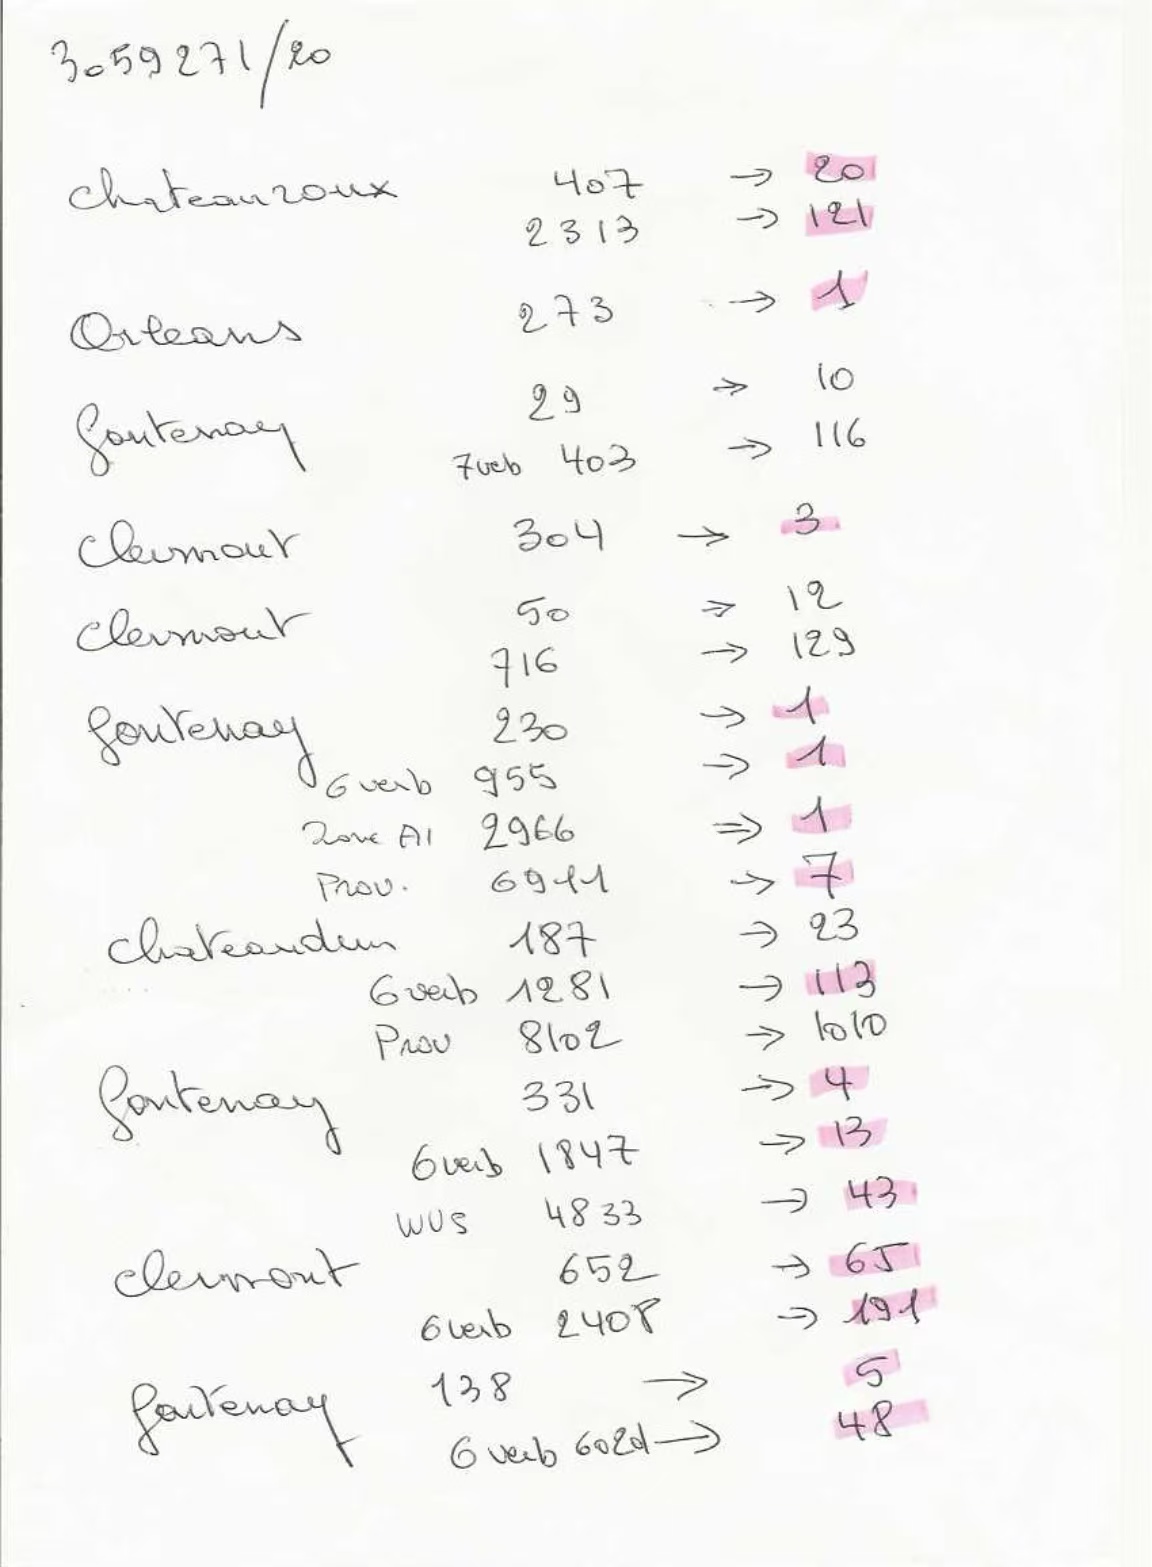 3059271/20
Chateauroux 407 → 20
2313 → 121
Orleans 273 → 1
fontenay 29 → 10
7verb 403 → 116
Clermont 304 → 3
Clermont 50 → 12
716 → 129
fontenay 230 → 1
6 verb 955 → 1
Zone A1 2966 → 1
Prov. 6911 → 7
Chateaudun 187 → 23
6verb 1281 → 113
Prov 8102 → 1010
fontenay 331 → 4
6verb 1847 → 13
WUS 4833 → 43
Clermont 652 → 65
6verb 2408 → 191
fontenay 138 → 5
6 verb 602d → 48